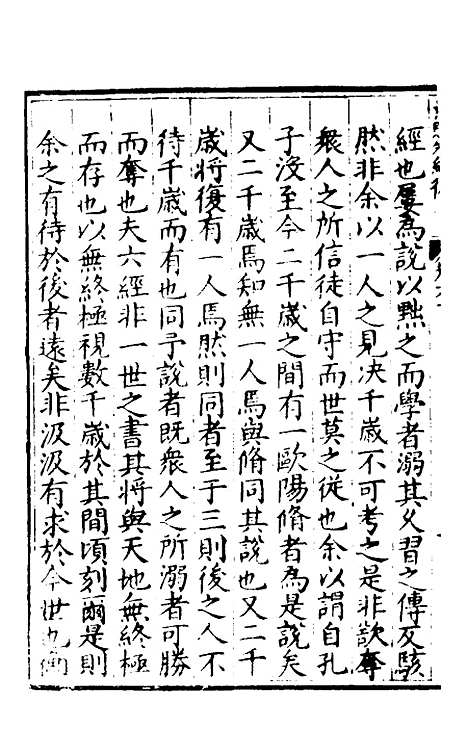 經也屢為說以黜之而學者溺其久習之傳反駭
然非余以一人之見决千歲不可考之是非欲奪
衆人之所信徒自守而世莫之從也余以謂自孔
子沒至今二千歲之間有一歐陽脩者為是說矣
又二千歲焉知無一人焉與脩同其說也又二千
歲將復有一人焉然則同者至于三則後之人不
待千歲而有也同予說者既衆人之所溺者可勝
而奪也夫六經非一世之書其將與天地無終極
而存也以無終極視數千歲於其間頃刻爾是則
余之有待於後者遠矣非汲汲有求於今世也衡